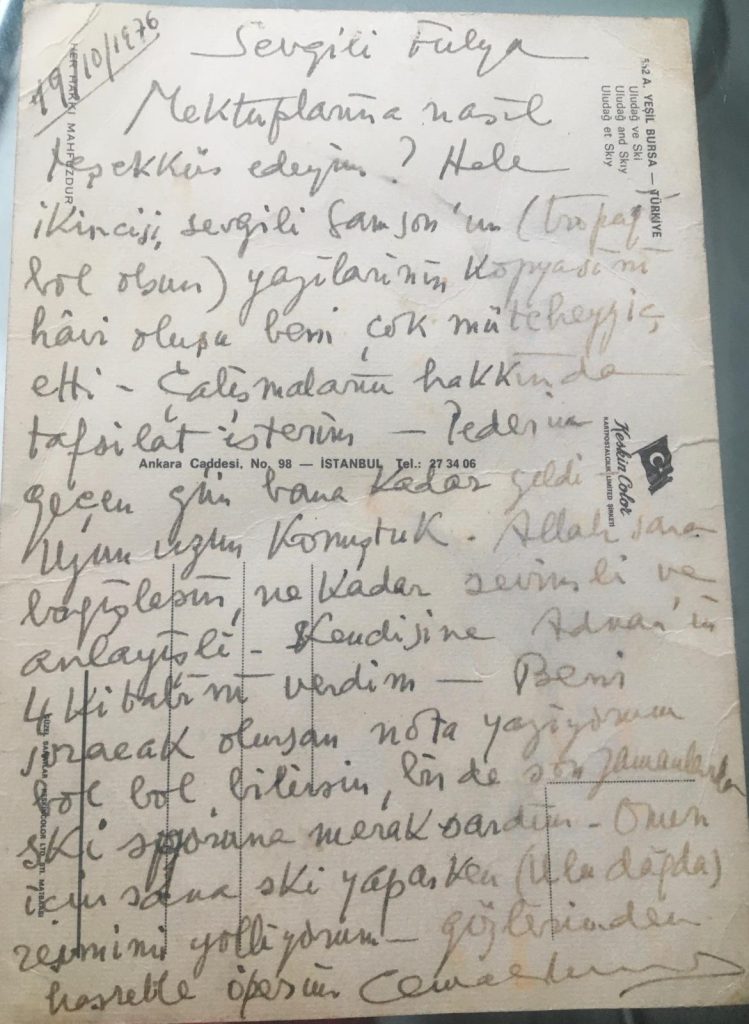 19/10/1976
Sevgili Fulya
Mektuplarına nasıl
teşekkür edeyim? Hele
ikincisi, sevgili Samson'un (toprağı
bol olsun) yazılarının kopyasını
hâvi oluşu beni çok mütcheyyiç
etti - Çalışmaların hakkında
tafsilât isterim — Pederin
geçen gün bana kadar geldi
uzun uzun konuştuk. Allah sana
bağışlasın, ne kadar sevimli ve
anlayışlı - Kendisine Adnan'ın
4 kitabını verdim — Beni
soracak olursan nota yazıyorum
bol bol bilirsin, bir de son zamanlarda
ski sporuna merak sardım - Onun
için sana ski yaparken (Uludağda)
resmimi yolluyorum - gözlerinden
hasretle öperim Cemal
552 A. YEŞİL BURSA — TÜRKİYE
Uludağ ve Ski
Uludağ and Skiy
Uludağ et Skiy
HER HAKKI MAHFUZDUR
Keskin Color
KARTPOSTALCILIK LİMİTED ŞİRKETİ
Ankara Caddesi, No. 98 — İSTANBUL Tel.: 27 34 06